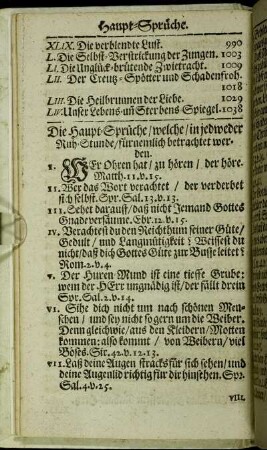 Haupt-Sprüche.
XLIX. Die verblendte Lust. 990
L. Die Selbst-Verstrickung der Zungen. 1003
LI. Die Unglück-brütende Zwietracht. 1009
LII. Der Creutz-Spötter und Schadenfroh.
1018
LIII. Die Heilbrunnen der Liebe. 1029
LIV. Unser Lebens-uñ Sterbens Spiegel. 1038
Die Haupt-Sprüche / welche / in jedweder
Ruh-Stunde / fürnemlich betrachtet wer-
den.
I. WEr Ohren hat / zu hören / der höre.
Matth. 11. v. 15.
II. Wer das Wort verachtet / der verderbet
sich selbst. Spr. Sal. 13. v. 13.
III. Sehet darauff / daß nicht Jemand Gottes
Gnade versäume. Ebr. 12. v. 15.
IV. Verachtest du den Reichthum seiner Güte /
Gedult / und Langmütigkeit? Weissest du
nicht / daß dich Gottes Güte zur Busse leitet?
Rom. 2. v. 4.
V. Der Huren Mund ist eine tieffe Grube:
wem der HErr ungnädig ist / der fällt drein
Spr. Sal. 2. v. 14.
VI. Sihe dich nicht um nach schönen Men-
schen / und sey nicht so gern um die Weiber.
Denn gleichwie / aus den Kleidern / Motten
kommen: also kommt / von Weibern / viel
Böses. Sir. 42. v. 12. 13.
VII. Laß deine Augen stracks für sich sehen / und
deine Augenlid richtig für dir hinsehen. Spr.
Sal. 4. v. 25.
VIII.